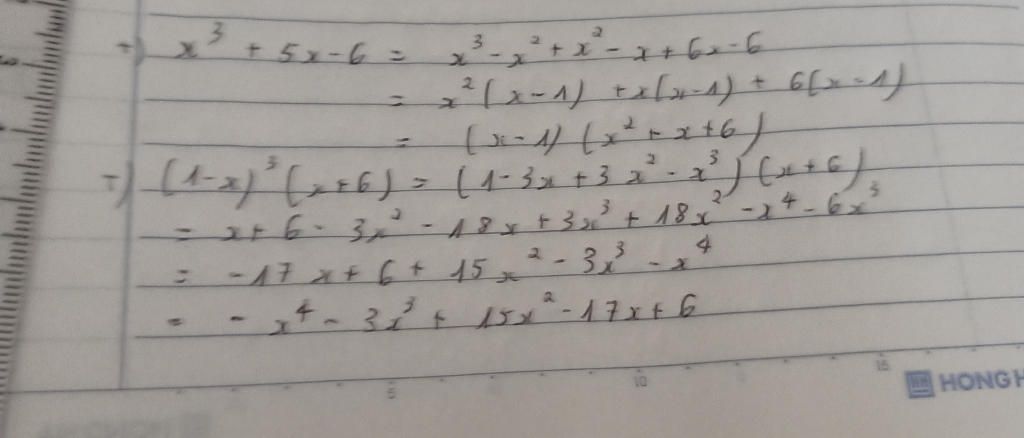 +) x³ + 5x - 6 = x³ - x² + x² - x + 6x - 6
= x²(x - 1) + x(x - 1) + 6(x - 1)
= (x - 1)(x² + x + 6)
+) (1 - x)³(x + 6) = (1 - 3x + 3x² - x³)(x + 6)
= x + 6 - 3x² - 18x + 3x³ + 18x² - x⁴ - 6x³
= -17x + 6 + 15x² - 3x³ - x⁴
= -x⁴ - 3x³ + 15x² - 17x + 6
5 10 15
HONG H